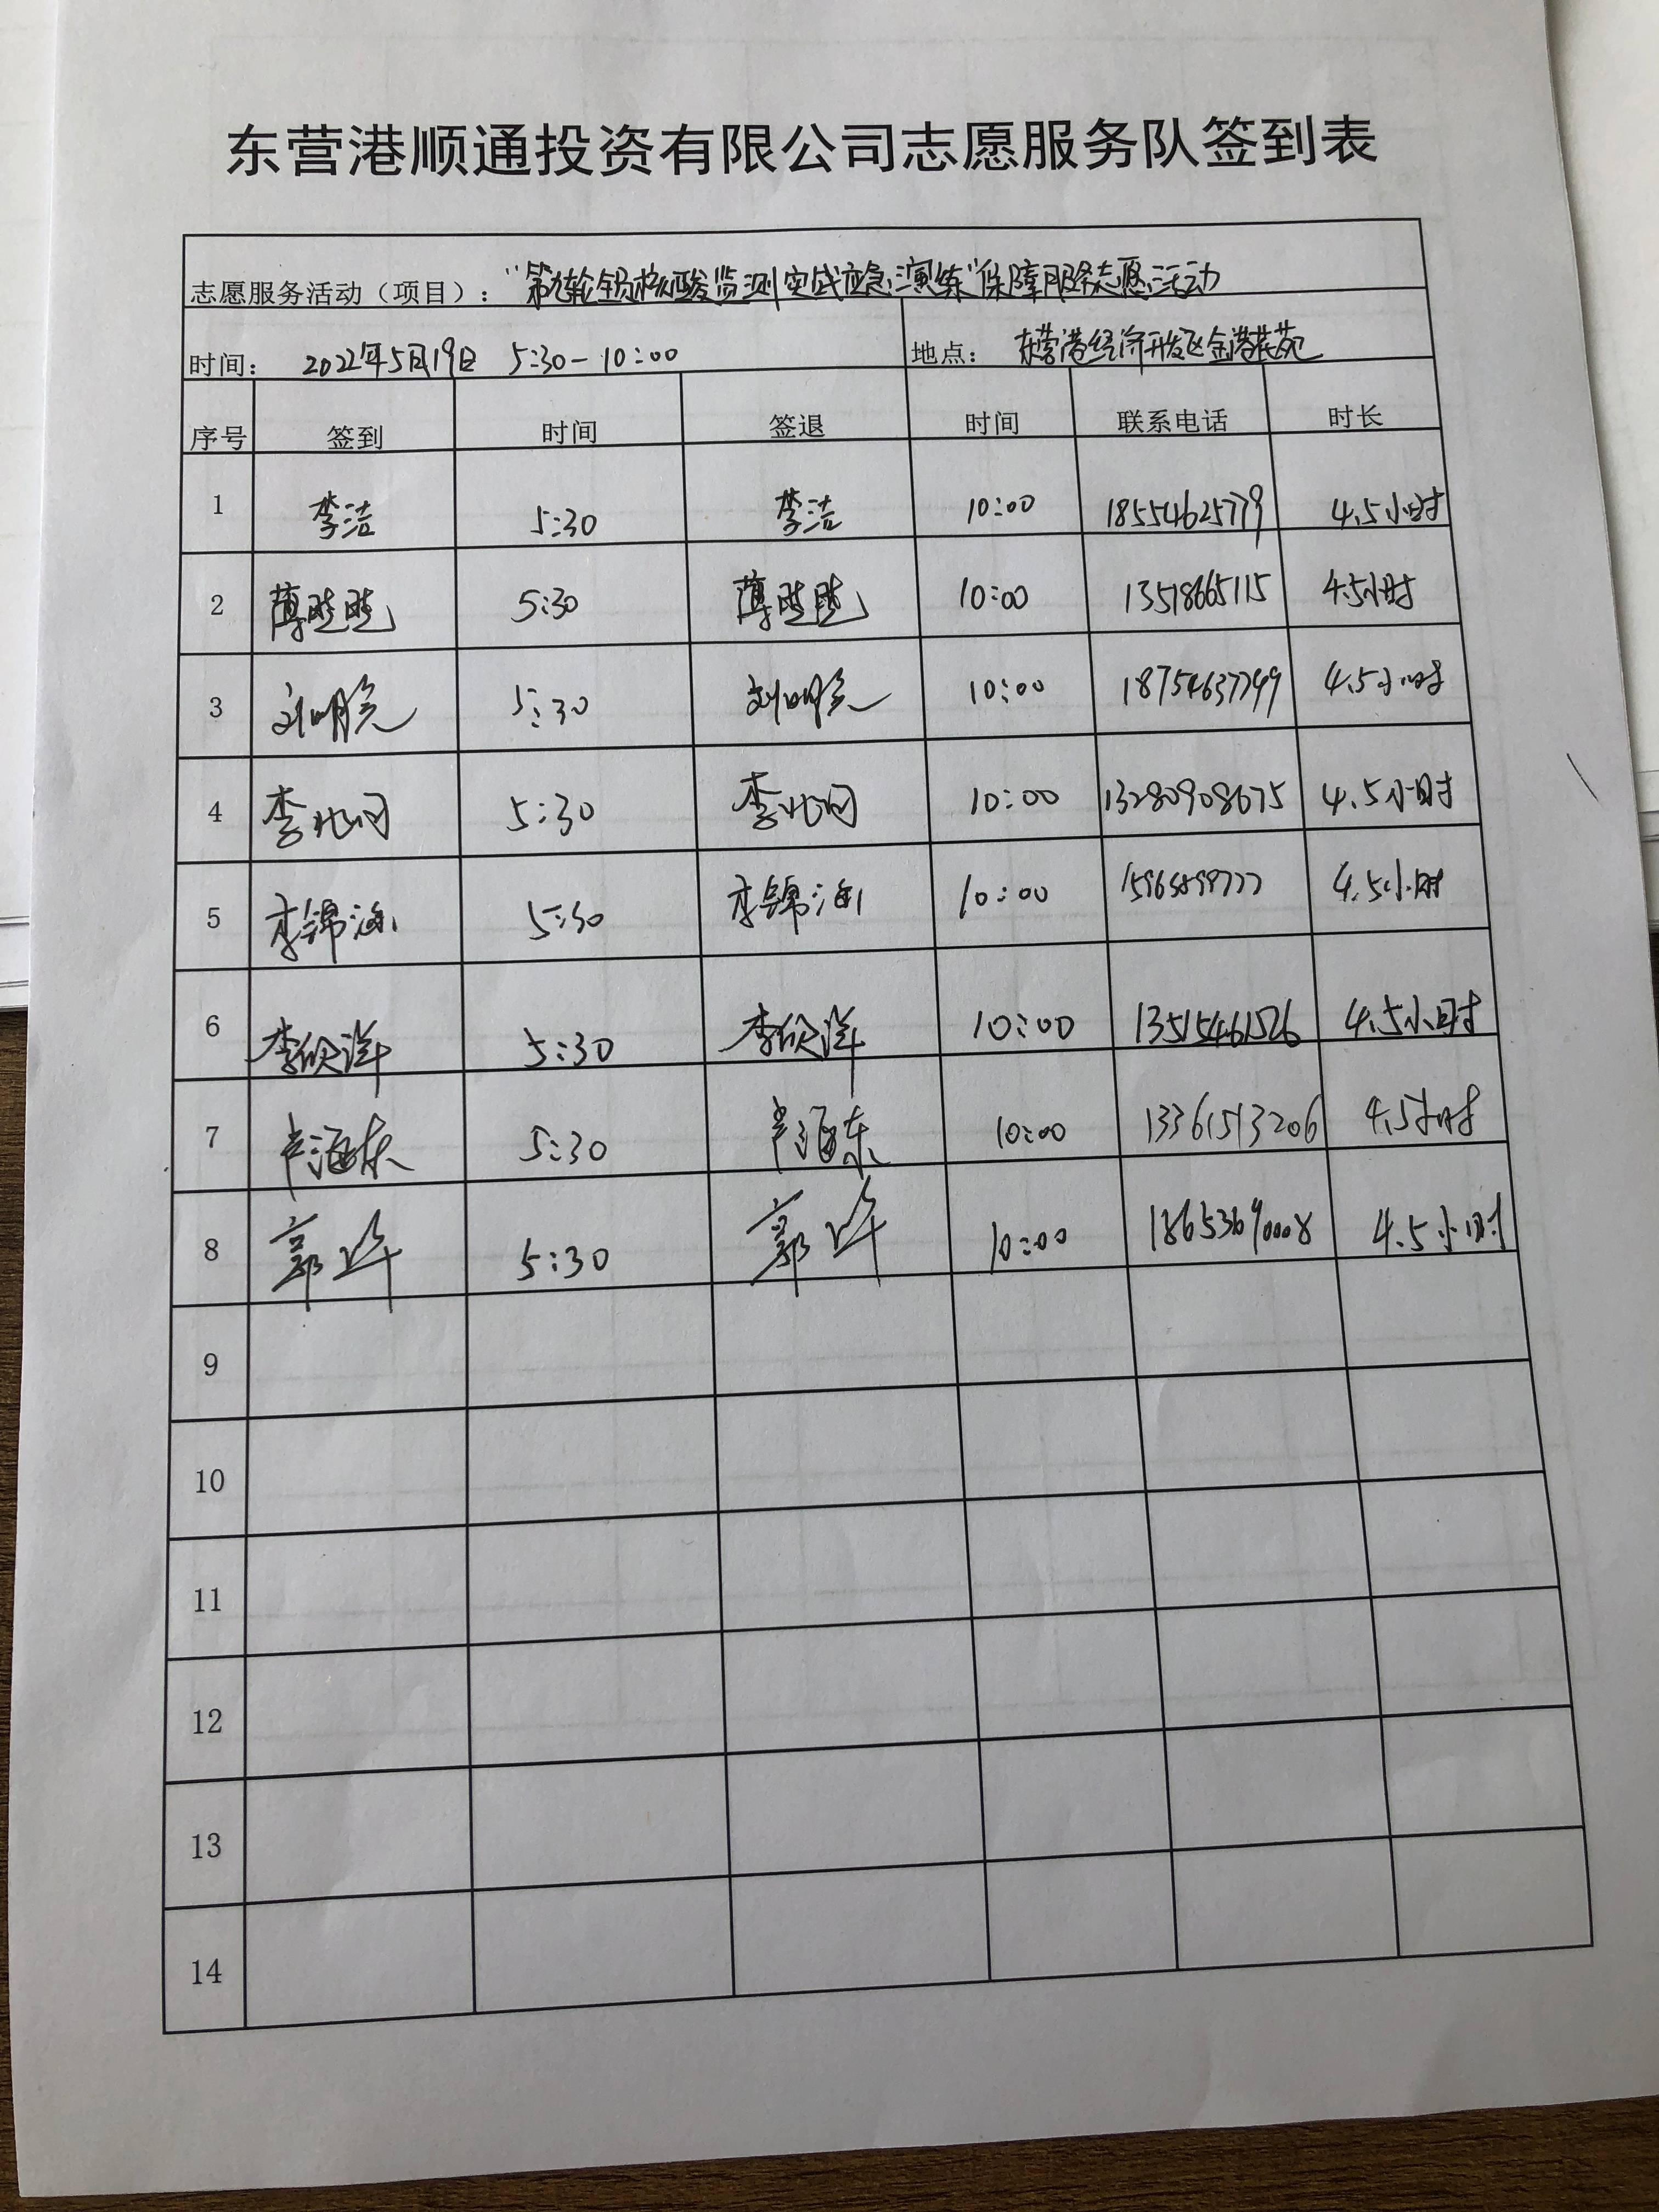 东营港顺通投资有限公司志愿服务队签到表
志愿服务活动（项目）：“第九轮全员核酸监测实战应急演练”保障服务志愿活动
时间： 2022年5月19日 5:30-10:00 地点： 东营港经济开发区金港花苑
序号 签到 时间 签退 时间 联系电话 时长
1 李洁 5:30 李洁 10:00 18554625779 4.5小时
2 薄 5:30 薄 10:00 13518665115 4.5小时
3 刘明 5:30 刘明 10:00 18754637799 4.5小时
4 李 5:30 李 10:00 13280908675 4.5小时
5 李锦涵 5:30 李锦涵 10:00 4.5小时
6 李欣洋 5:30 李欣洋 10:00 13515461526 4.5小时
7 海东 5:30 海东 10:00 13361513206 4.5小时
8 郭 5:30 郭 10:00 18653690008 4.5小时
9
10
11
12
13
14